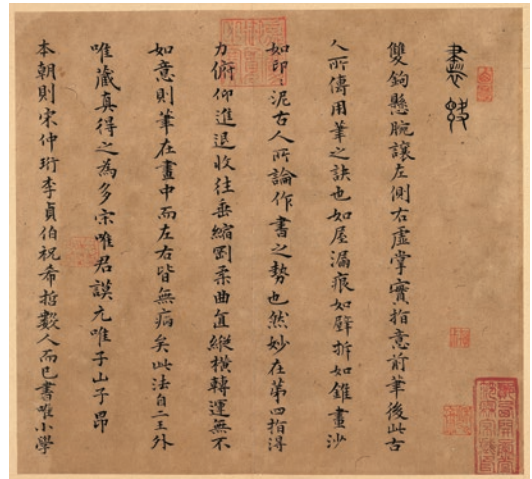 書訣
雙鉤懸腕讓左側右虛掌實指意前筆後此古
人所傳用筆之訣也如屋漏痕如壁拆如錐畫沙
如印印泥古人所論作書之勢也然妙在第四指得
力俯仰進退收往垂縮剛柔曲直縱橫轉運無不
如意則筆在畫中而左右皆無病矣此法自二王外
唯藏真得之為多宗唯君謨元唯子山子昂
本朝則宋仲珩李貞伯祝希哲數人而已書唯小學